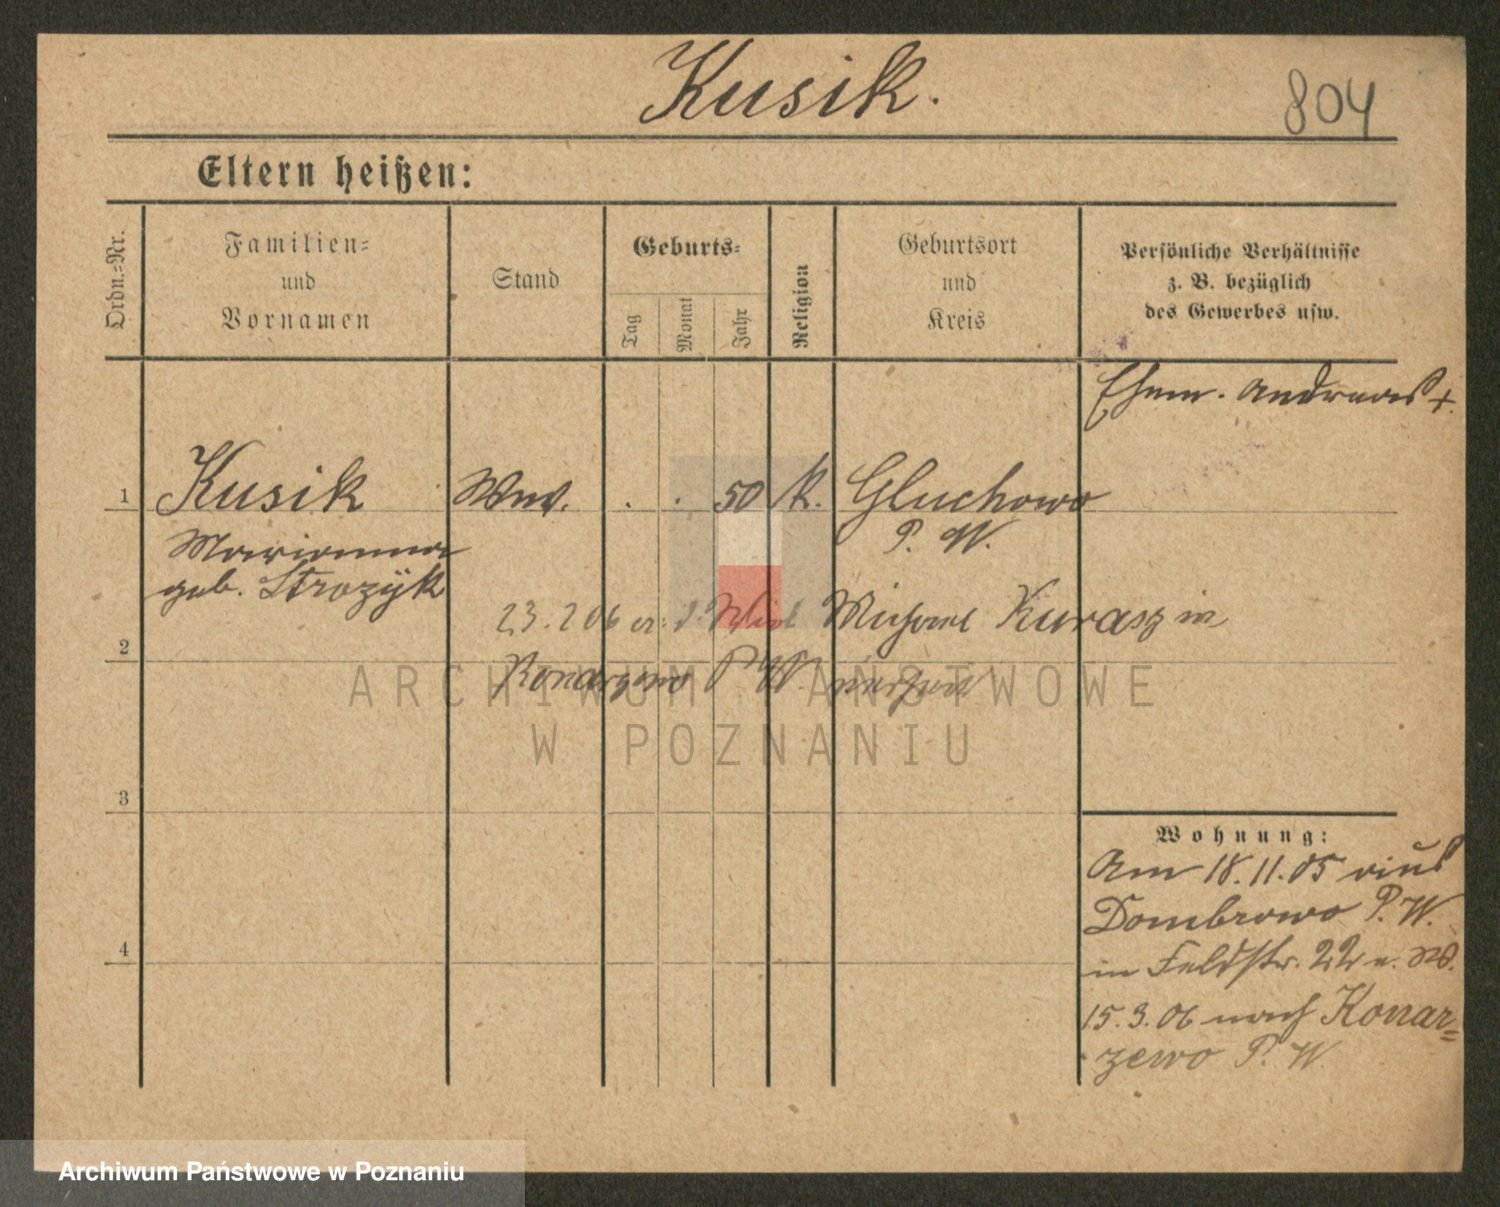 Kusik.
804
Eltern heißen:
Ordn.=Nr.
Familien=
und
Vornamen
Stand
Geburts=
Tag
Monat
Jahr
Religion
Geburtsort
und
Kreis
Persönliche Verhältnisse
z. B. bezüglich
des Gewerbes usw.
Ehem. Andreas +.
1
Kusik
Wwe.
. . 50
K.
Gluchowo
P. W.
Marianna
geb. Strozÿk
23. 2 06 Michael Kurasz in
2
Konarzewo P W.
ARCHIWUM PAŃSTWOWE
W POZNANIU
3
Wohnung:
Am 18.11.05 aus
Dombrowo P. W.
in Feldstr. 22
4
15.3.06 nach Konar=
zewo P. W.
Archiwum Państwowe w Poznaniu